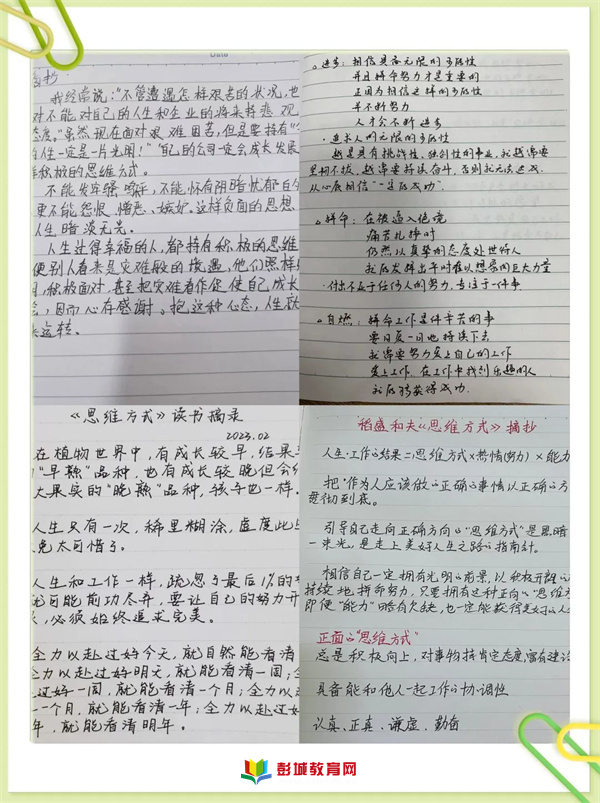 摘抄
我经常说:“不管遭遇怎样艰苦的状况,也
对不能对自己的人生和企业的将来持悲观
态度。”虽然现在面对艰难困苦,但是要持有“
人生一定是一片光明!”自己的公司一定会成长发展
积极的思维方式。
不能发牢骚 不能怀有阴暗忧郁
更不能怨恨、憎恶、嫉妒。这样负面的思想
人生暗淡无光。
人生过得幸福的人,都持有积极的思维
便别人看来是灾难般的境遇,他们照样
积极面对,甚至把灾难看作促使自己成长
会,因而心存感谢。抱这种心态,人生就
运转。
。进步:相信具备无限的可能性
并且拼命努力才是重要的
正因为相信这样的可能性
并不断努力
人才会不断进步
·追求人的无限的可能性
越是具有挑战性、独创性的事业,就越需要
坚韧不拔,越需要持续奋斗,否则就无法达成
从心底相信“一定能成功”.
。拼命:在被逼入绝境
痛苦挣扎时
仍然以真挚的态度处世待人
就能发挥出平时难以想象的巨大力量
·付出不亚于任何人的努力,专注于一件事
。自燃:拼命工作是件辛苦的事
要日复一日地持续下去
就需要努力爱上自己的工作
爱上工作,在工作中找到乐趣的人
就能够获得成功.
《思维方式》读书摘录
2023.02
在植物世界中,有成长较早,结果
的“早熟”品种,也有成长较晚但会结
大果实的“晚熟”品种,孩子也一样.
人生只有一次,稀里糊涂,虚度此
免太可惜了.
人生和工作一样,疏忽了最后1%的
就可能前功尽弃,要让自己的努力开
必须始终追求完美.
全力以赴过好今天,就自然能看清
全力以赴过好明天,就能看清一周;全
过好一周,就能看清一个月;全力以赴
一个月,就能看清一年;全力以赴过好
年,就能看清明年.
稻盛和夫《思维方式》摘抄
人生·工作的结果=思维方式×热情(努力)×能力
把“作为人应该做的正确的事情以正确的方
贯彻到底。
引导自己走向正确方向的“思维方式”是黑暗
一束光,是走上美好人生之路的指南针。
相信自己一定拥有光明的前景,以积极开朗的
持续地拼命努力,只要拥有这种正向的“思维方
即便“能力”略有欠缺,也一定能获得美好的人
正面的“思维方式”
总是积极向上,对事物持肯定态度富有建设
具备能和他人一起工作的协调性
认真、正直、谦虚、勤奋
彭城教育网